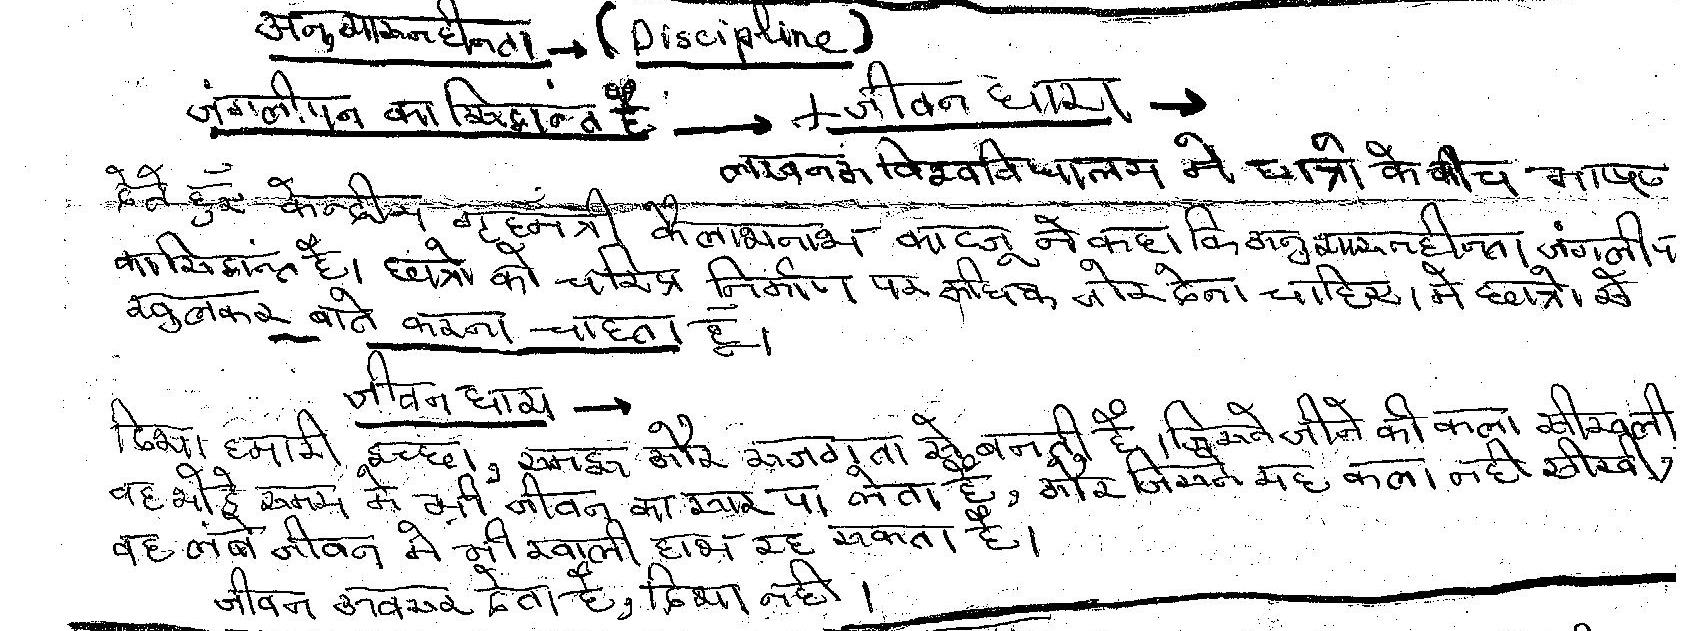 अनुशासनहीनता → (Discipline)
जंगलीपन का सिद्धांत है → + जीवन धारा →
लखनऊ विश्वविधालय मे छात्रो के बीच भाषण
देते हुए केन्द्रीय गृहमंत्री कैलाशनाथ काटजू ने कहा कि अनुशासनहीनता जंगलीप
का सिद्धांत है। छात्रो को चरित्र निर्माण पर अधिक जोर देना चाहिए। मे छात्रो से
खुलकर बाते करना चाहता हूँ।
जीवन धारा →
दिशा हमारी इच्छा, समझ और सजगता से बनती है। जिसने जीने की कला सीखली
वह थोड़े समय मे भी जीवन का सार पा लेता है, और जिसने यह कला नही सीखी,
वह लंबे जीवन मे भी खाली हाथ रह सकता है।
जीवन अवसर देता है, दिशा नही।